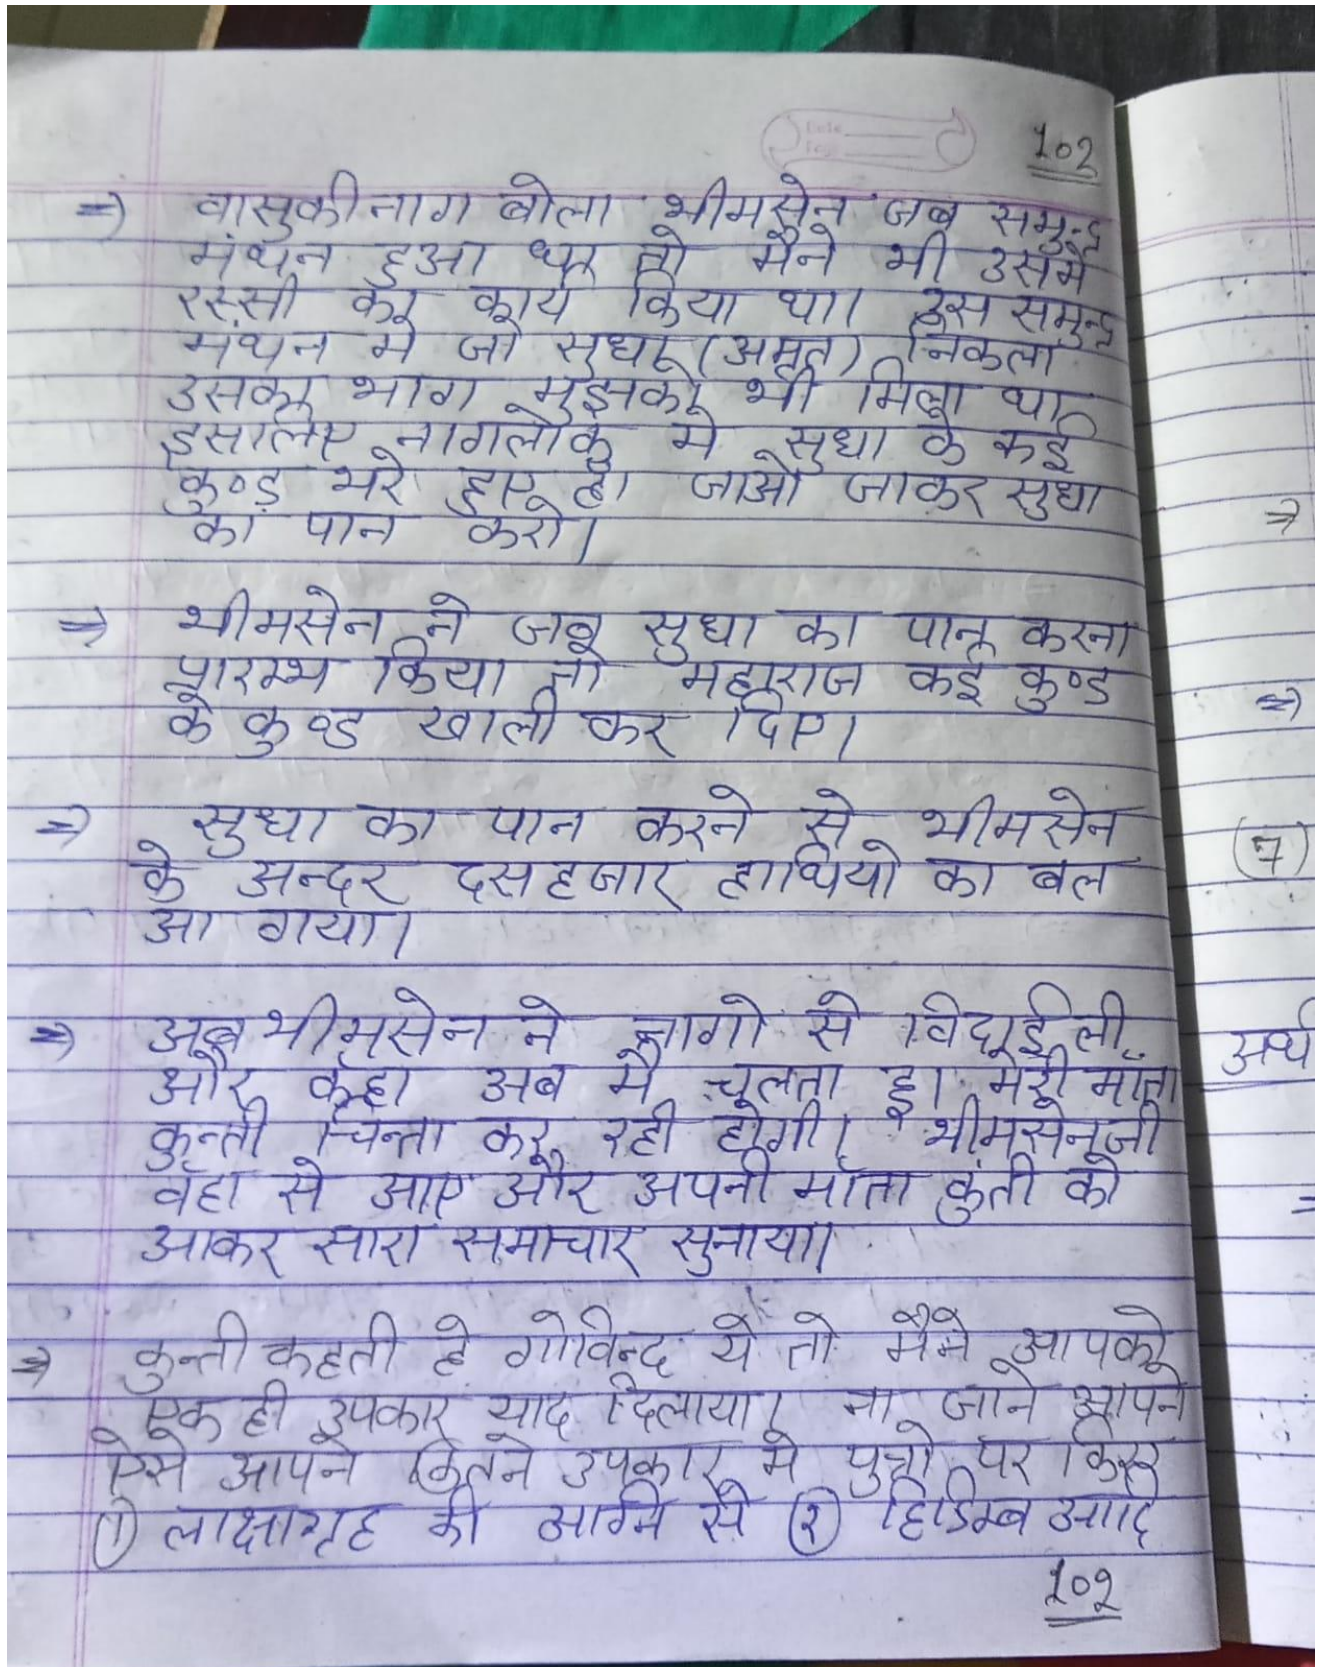 102
=> वासुकी नाग बोला भीमसेन जब समुन्द्र
मंथन हुआ था तो मैने भी उसमें
रस्सी का कार्य किया था। उस समुन्द्र
मंथन मे जो सुधा (अमृत) निकला
उसका भाग मुझको भी मिला था
इसलिए नागलोक मे सुधा के कई
कुण्ड भरे हुए है। जाओ जाकर सुधा
का पान करो।
=> भीमसेन ने जब सुधा का पान करना
प्रारम्भ किया तो महाराज कई कुण्ड
के कुण्ड खाली कर दिए।
=> सुधा का पान करने से भीमसेन
के अन्दर दस हजार हाथियो का बल
आ गया।
=> अब भीमसेन ने नागो से विदाई ली
और कहा अब मै चलता हू। मेरी माँता
कुन्ती चिन्ता कर रही होगी। भीमसेन जी
वँहा से आए और अपनी माँता कुंती को
आकर सारा समाचार सुनाया।
=> कुन्ती कहती हे गोविन्द ये तो मैने आपको
एक ही उपकार याद दिलाया। ना जाने आपने
ऐसे आपने कितने उपकार मे पुत्रो पर किए
① लाक्षागृह की अग्नि से ② हिडिम्ब आदि
102
=>
=>
(7)
अर्थ